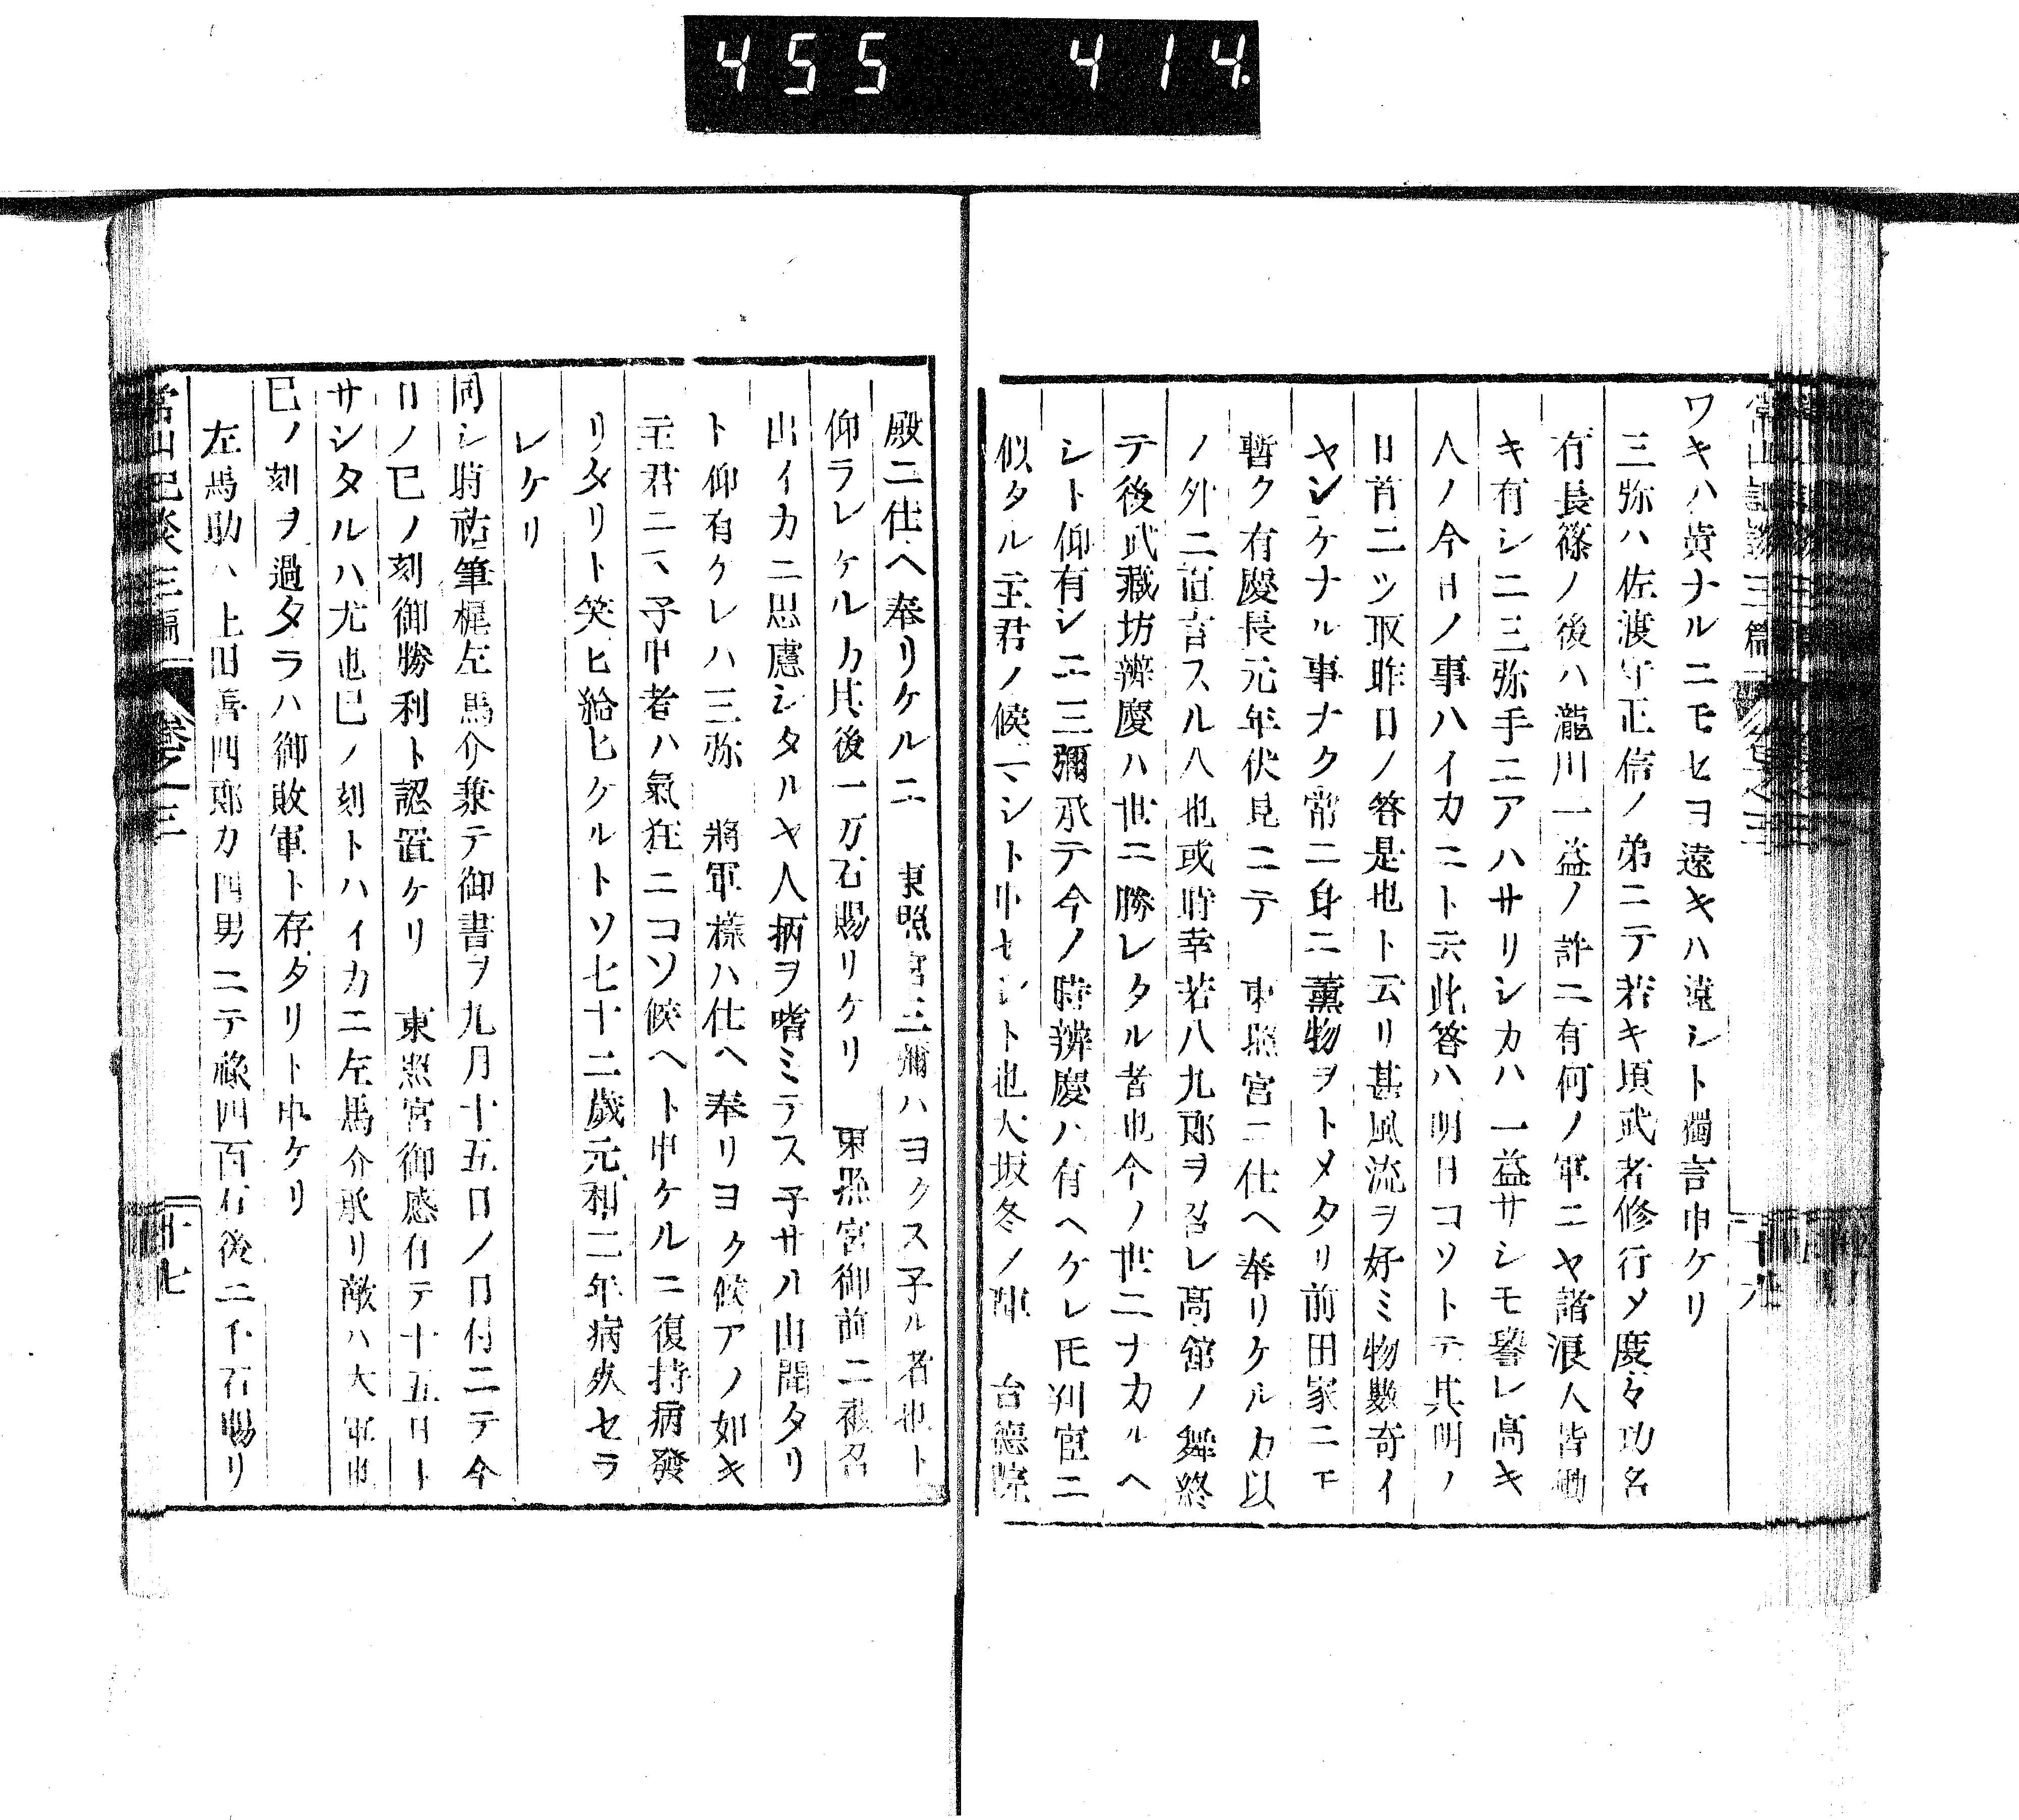 455 414
ワキハ黄ナルニモセヨ遠キハ遠シト獨言申ケリ
三弥ハ佐渡守正信ノ弟ニテ若キ頃武者修行メ慶々功名
有長篠ノ後ハ瀧川一益ノ許ニ有何ノ軍ニヤ諸浪人皆働
キ有シニ三弥手ニアハサリシカハ一益サシモ譽レ高キ
人ノ今日ノ事ハイカニト云此答ハ明日コソトテ其明ノ
日首二ツ取昨日ノ答是也ト云リ甚風流ヲ好ミ物數奇イ
ヤシケナル事ナク常ニ身ニ薫物ヲトメタリ前田家ニモ
暫ク有慶長元年伏見ニテ 東照宮ニ仕ヘ奉リケルカ以
ノ外ニ過言スル人也或時幸若八九郎ヲ召レ高舘ノ舞終
テ後武藏坊辨慶ハ世ニ勝レタル者也今ノ世ニナカルヘ
シト仰有シニ三彌承テ今ノ時辨慶ハ有ヘケレ𪜈判官ニ
似タル主君ノ候マシト申セシト也大坂冬ノ陣 台德院
殿ニ仕ヘ奉リケルニ 東照宮三彌ハヨクス子ル者也ト
仰ラレケルカ其後一万石賜リケリ 東照宮御前ニ被召
出イカニ思慮シタルヤ人柄ヲ嗜ミテス子サル由聞タリ
ト仰有ケレハ三弥 將軍樣ハ仕ヘ奉リヨク候アノ如キ
主君ニス子申者ハ氣狂ニコソ候ヘト申ケルニ復持病發
リタリト笑ヒ給ヒケルトソ七十二歲元和二年病死セラ
レケリ
同シ時祐筆梶左馬介兼テ御書ヲ九月十五日ノ日付ニテ今
日ノ巳ノ刻御勝利ト認置ケリ 東照宮御感有テ十五日ト
サシタルハ尤也巳ノ刻トハイカニ左馬介承リ敵ハ大軍也
巳ノ刻ヲ過タラハ御敗軍ト存タリト申ケリ
左馬助ハ上田善四郎カ四男ニテ祿四百石後ニ千石賜リ
常山紀談三編 卷之三 十七